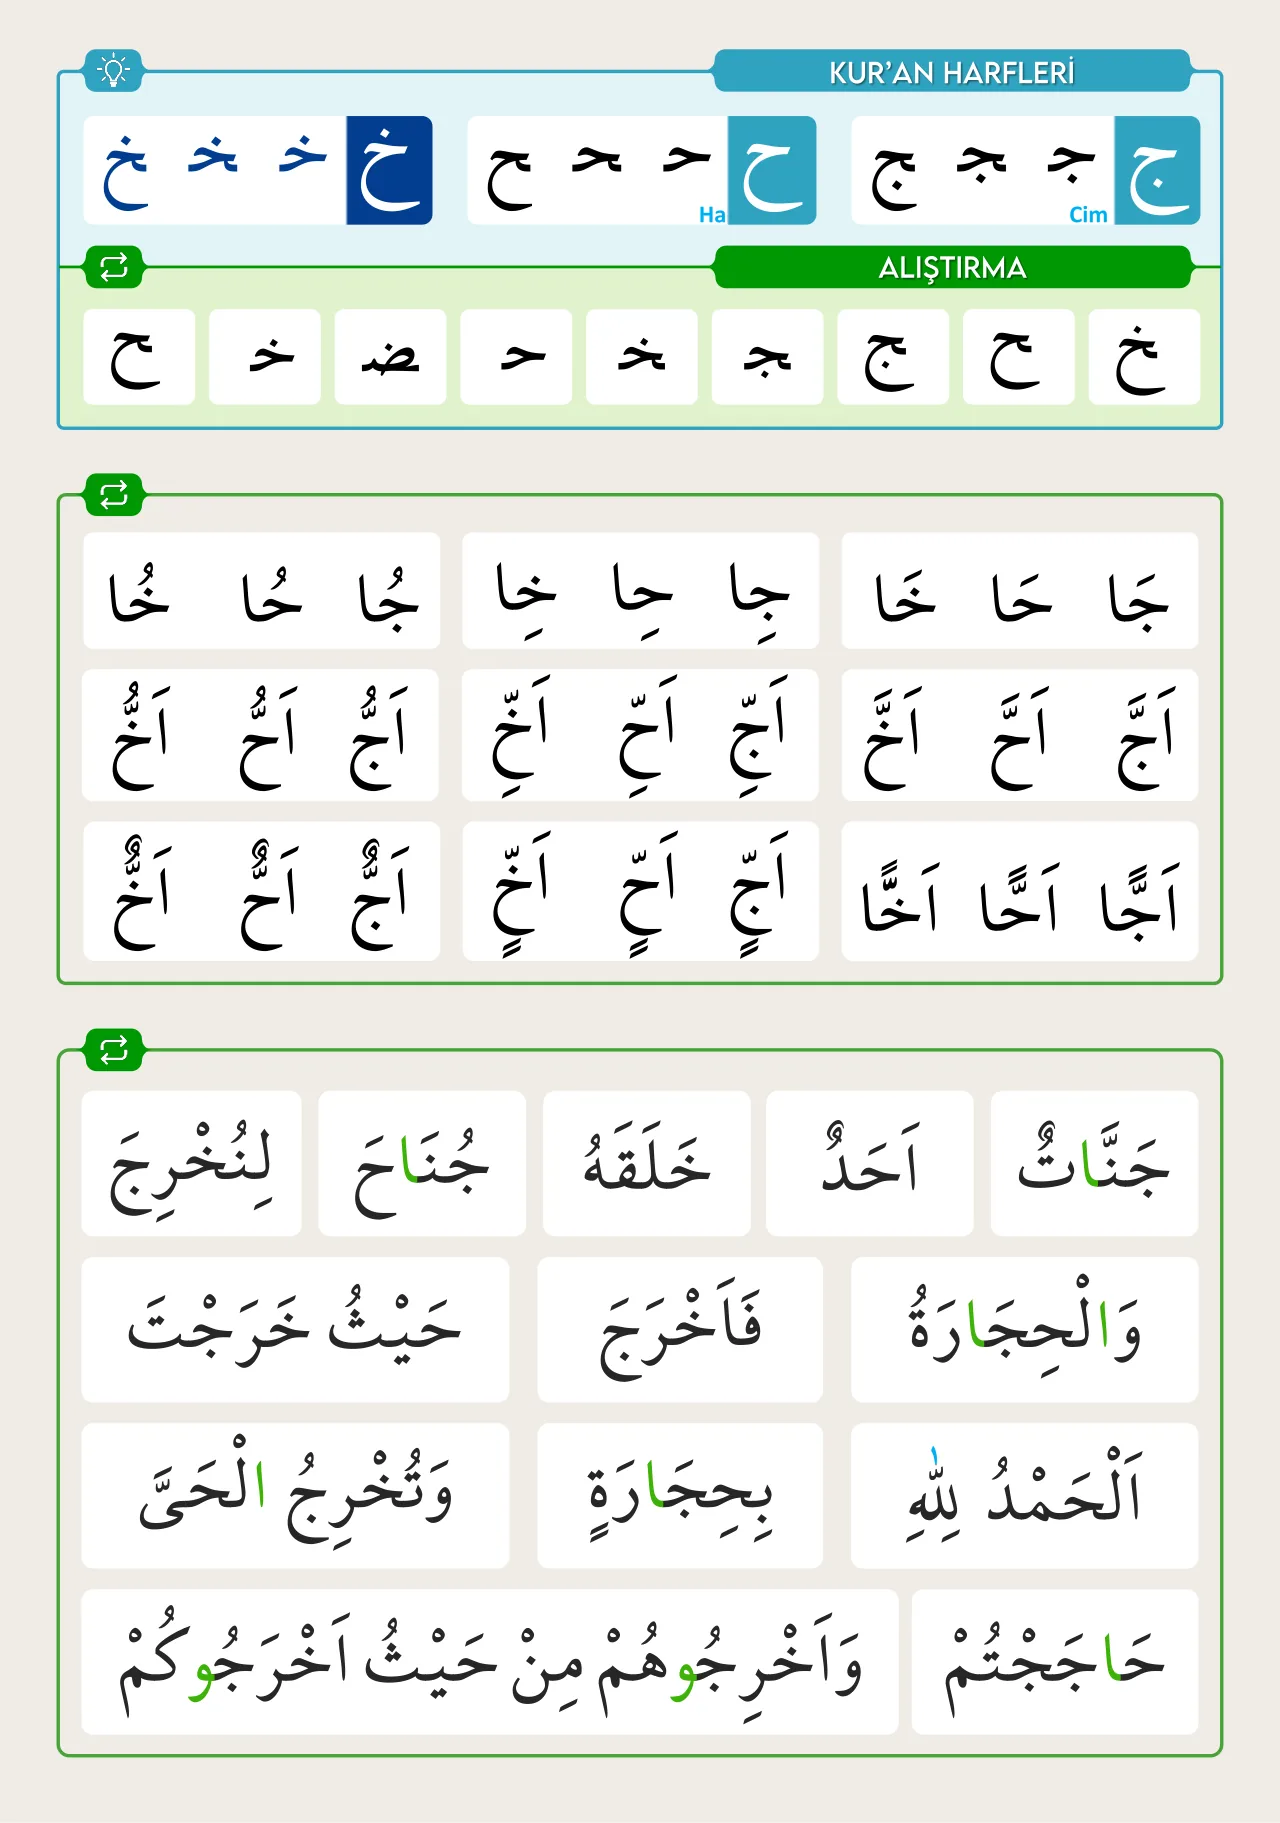 KUR'AN HARFLERİ
ج جـ ـجـ ج Cim ح حـ ـحـ ح Ha خ خـ ـخـ خ
ALIŞTIRMA
خ ح ج ـجـ ـخـ حـ ـضـ خـ ح
جَا حَا خَا جِا حِا خِا جُا حُا خُا
اَجَّ اَحَّ اَخَّ اَجِّ اَحِّ اَخِّ اَجُّ اَحُّ اَخُّ
اَجًّا اَحًّا اَخًّا اَجٍّ اَحٍّ اَخٍّ اَجٌّ اَحٌّ اَخٌّ
جَنَّاتٌ اَحَدٌ خَلَقَهُ جُنَاحَ لِنُخْرِجَ
وَالْحِجَارَةُ فَاَخْرَجَ حَيْثُ خَرَجْتَ
اَلْحَمْدُ لِلّٰهِ بِحِجَارَةٍ وَتُخْرِجُ الْحَىَّ
حَاجَجْتُمْ وَاَخْرِجُوهُمْ مِنْ حَيْثُ اَخْرَجُوكُمْ